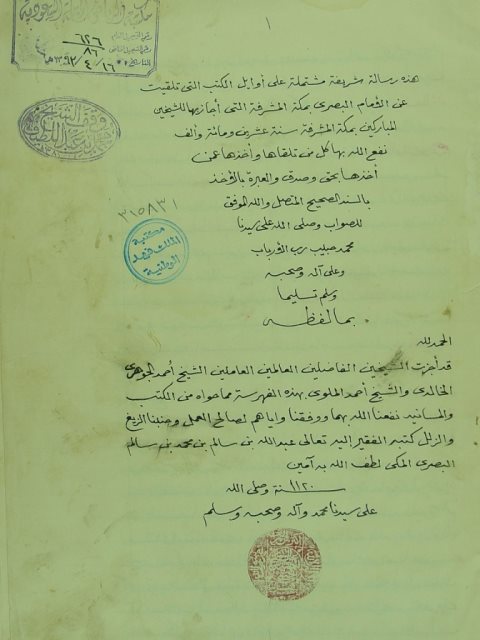 ١
مكتبة الرياض العامة السعودية
٦٢٦
٨٦
١٦ / ٤ / ١٣٩٢هـ
هذه رسالة شريفة مشتملة على أوايل الكتب التي تلقيت
عن الإمام البصري بمكة المشرفة التي أجاز بها للشيخين
المباركين بمكة المشرفة سنة عشرين ومائة وألف
نفع الله بها كل من تلقاها وأخذها عمن
أخذها بحق وصدق والعبرة بالأخذ
بالسند الصحيح المتصل والله الموفق
للصواب وصلى الله على سيدنا
محمد حبيب رب الأرباب
وعلى آله وصحبه
وسلم تسليما
بما لفظه
٣١٥٨٣١
مكتبة
الملك فهد
الوطنية
الحمد لله
قد أجزت الشيخين الفاضلين العالمين العاملين الشيخ أحمد الجوهري
الخالدي والشيخ أحمد الملوي بهذه الفهرسة مما حواه من الكتب
والمسانيد نفعنا الله بهما ووفقنا واياهم لصالح العمل وجنبنا الزيغ
والزلل كتبه الفقير إليه تعالى عبد الله بن سالم بن محمد بن سالم
البصري المكي لطف الله به آمين
١١٢٠ سنة وصلى الله
على سيدنا محمد وآله وصحبه وسلم